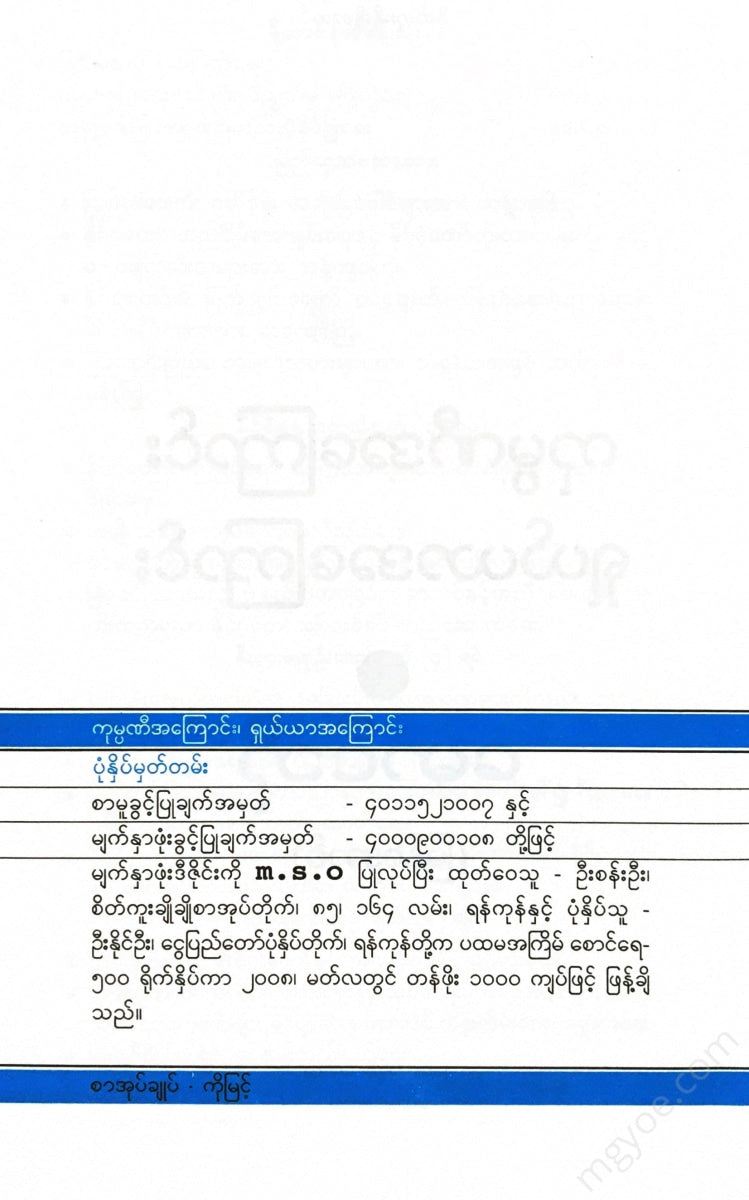 ကုမ္ပဏီအကြောင်း၊ ရှယ်ယာအကြောင်း
ပုံနှိပ်မှတ်တမ်း
စာမူခွင့်ပြုချက်အမှတ် - ၄၀၁၁၅၂၁၀၀၇ နှင့်
မျက်နှာဖုံးခွင့်ပြုချက်အမှတ် - ၄၀၀၀၉၀၀၁၀၈ တို့ဖြင့်
မျက်နှာဖုံးဒီဇိုင်းကို m.s.o ပြုလုပ်ပြီး ထုတ်ဝေသူ - ဦးစန်းဦး၊
စိတ်ကူးချိုချိုစာအုပ်တိုက်၊ ၈၅၊ ၁၆၄ လမ်း၊ ရန်ကုန်နှင့် ပုံနှိပ်သူ -
ဦးနိုင်ဦး၊ ငွေပြည်တော်ပုံနှိပ်တိုက်၊ ရန်ကုန်တို့က ပထမအကြိမ် စောင်ရေ-
၅၀၀ ရိုက်နှိပ်ကာ ၂၀၀၈၊ မတ်လတွင် တန်ဖိုး ၁၀၀၀ ကျပ်ဖြင့် ဖြန့်ချိ
သည်။
စာအုပ်ချုပ် - ကိုမြင့်
mgyoe.com